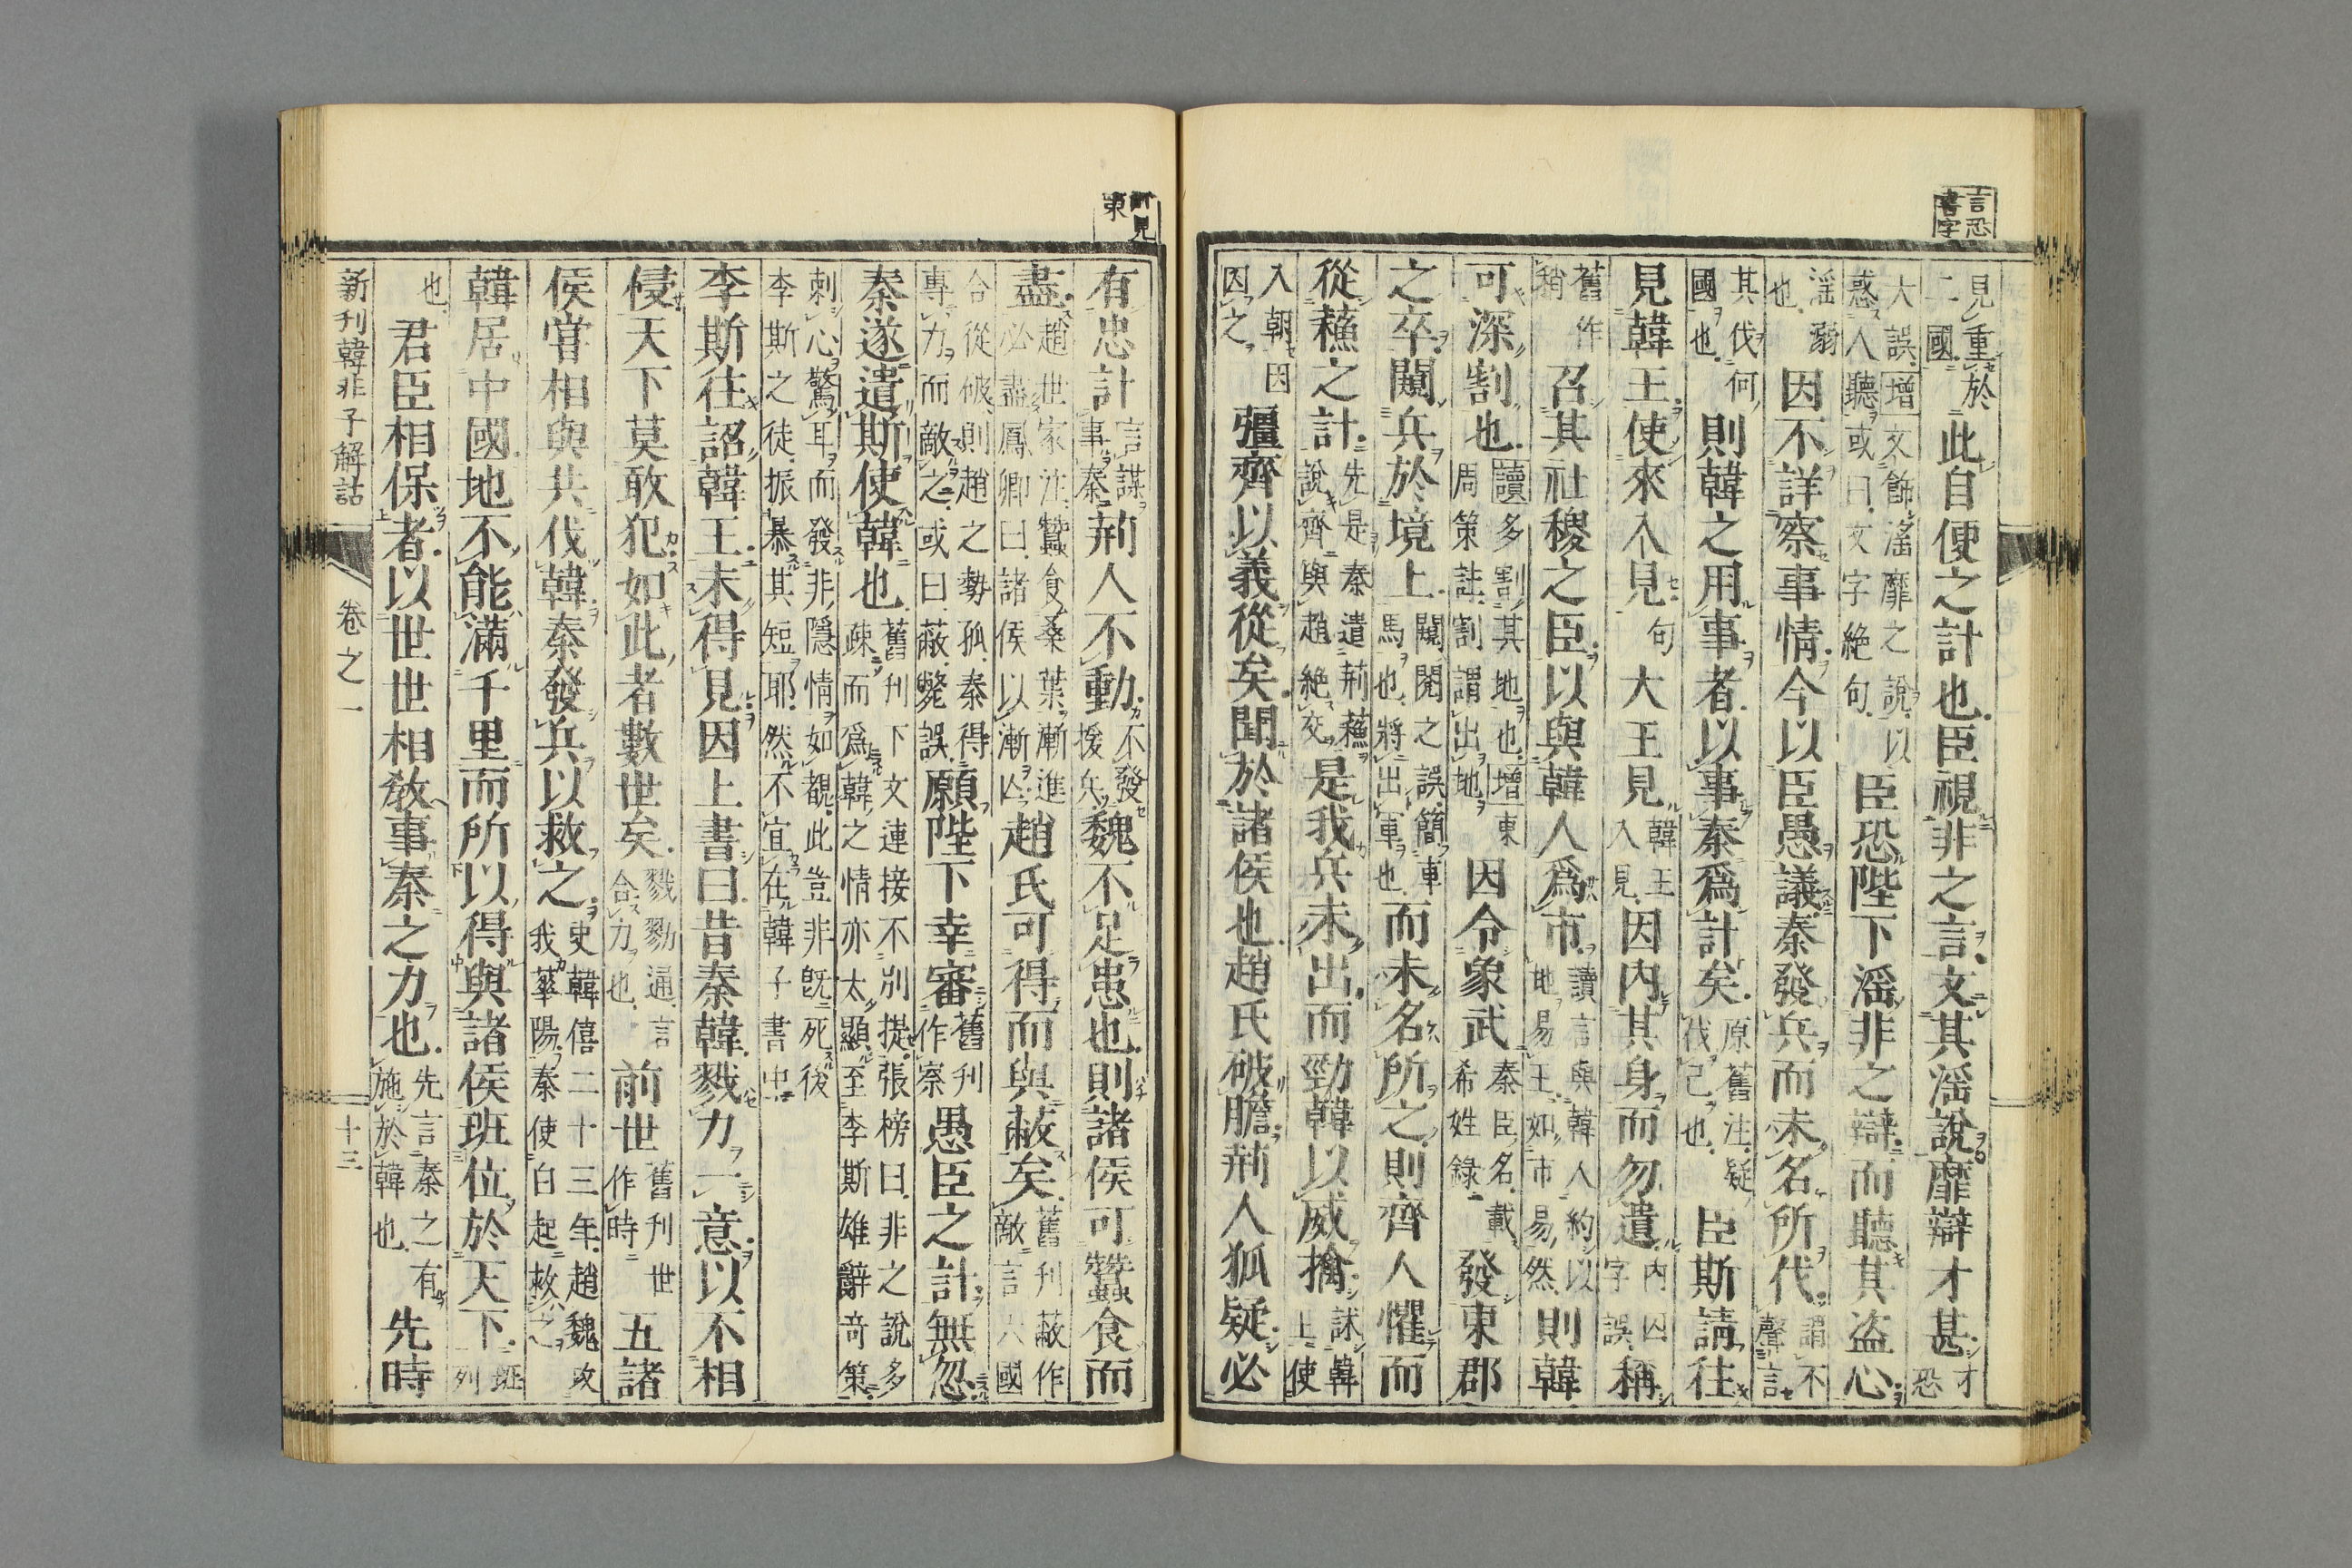 言恐
書字
見重於
二國
此自便之計也臣視非之言文其滛說靡辯才甚
才
恐
大誤增文飾滛靡之說以
惑人聽或曰文字絶句
臣恐陛下滛非之辯而聽其盗心
滛溺
也
因不詳察事情今以臣愚議秦發兵而未名所代
謂不
聲言
其伐何
國也
則韓之用事者以事秦爲計矣
原舊注疑
伐己也
臣斯請往
見韓王使來入見
句
大王見
韓王
入見
因内其身而勿遣
内囚
字誤
稱
舊作
稍
召其社稷之臣以與韓人爲市
讀言與韓人約以
地易王如市易然
則韓
可深割也
讀多割其地也增東
周策註割謂出地
因令象武
秦臣名載
希姓錄
發東郡
之卒闚兵於境上
闚閲之誤簡車
馬也將出軍也
而未名所之則齊人懼而
從蘓之計
先是秦遣荊蘓
說齊與趙絶交
是我兵未出而勁韓以威擒
訹韓
上使
入朝因
因之
彊齊以義從矣聞於諸侯也趙氏破膽荊人狐疑必
所見
東
有忠計
言謀
事秦
荊人不動
不發
援兵
魏不足患也則諸侯可蠶食而
盡
趙世家注蠶食桑葉漸進
必盡鳳卿曰諸侯以漸亾
趙氏可得而與蔽矣
舊刊蔽作
敵言六國
合從破則趙之勢孤秦得
專力而敵之或曰蔽斃誤
願陛下幸審
舊刊
作察
愚臣之計無忽
秦遂遣斯使韓也
舊刊下文連接不別提張榜曰非之說多
疎而爲韓之情亦太顯至李斯雄辭奇策
刺心驚耳而發非隱情如覩此豈非既死後
李斯之徒振暴其短耶然不宜在韓子書中
李斯往詔韓王未得見因上書曰昔秦韓戮力一意以不相
侵天下莫敢犯如此者數世矣
戮勠通言
合力也
前世
舊刊世
作時
五諸
侯嘗相與共伐韓秦發兵以救之
史韓僖二十三年趙魏攻
我華陽秦使白起救之
韓居中國地不能滿千里而所以得與諸侯班位於天下
班
列
也
君臣相保者以世世相教事秦之力也
先言秦之有
施於韓也
先時
新刊韓非子解詁 卷之一 十三